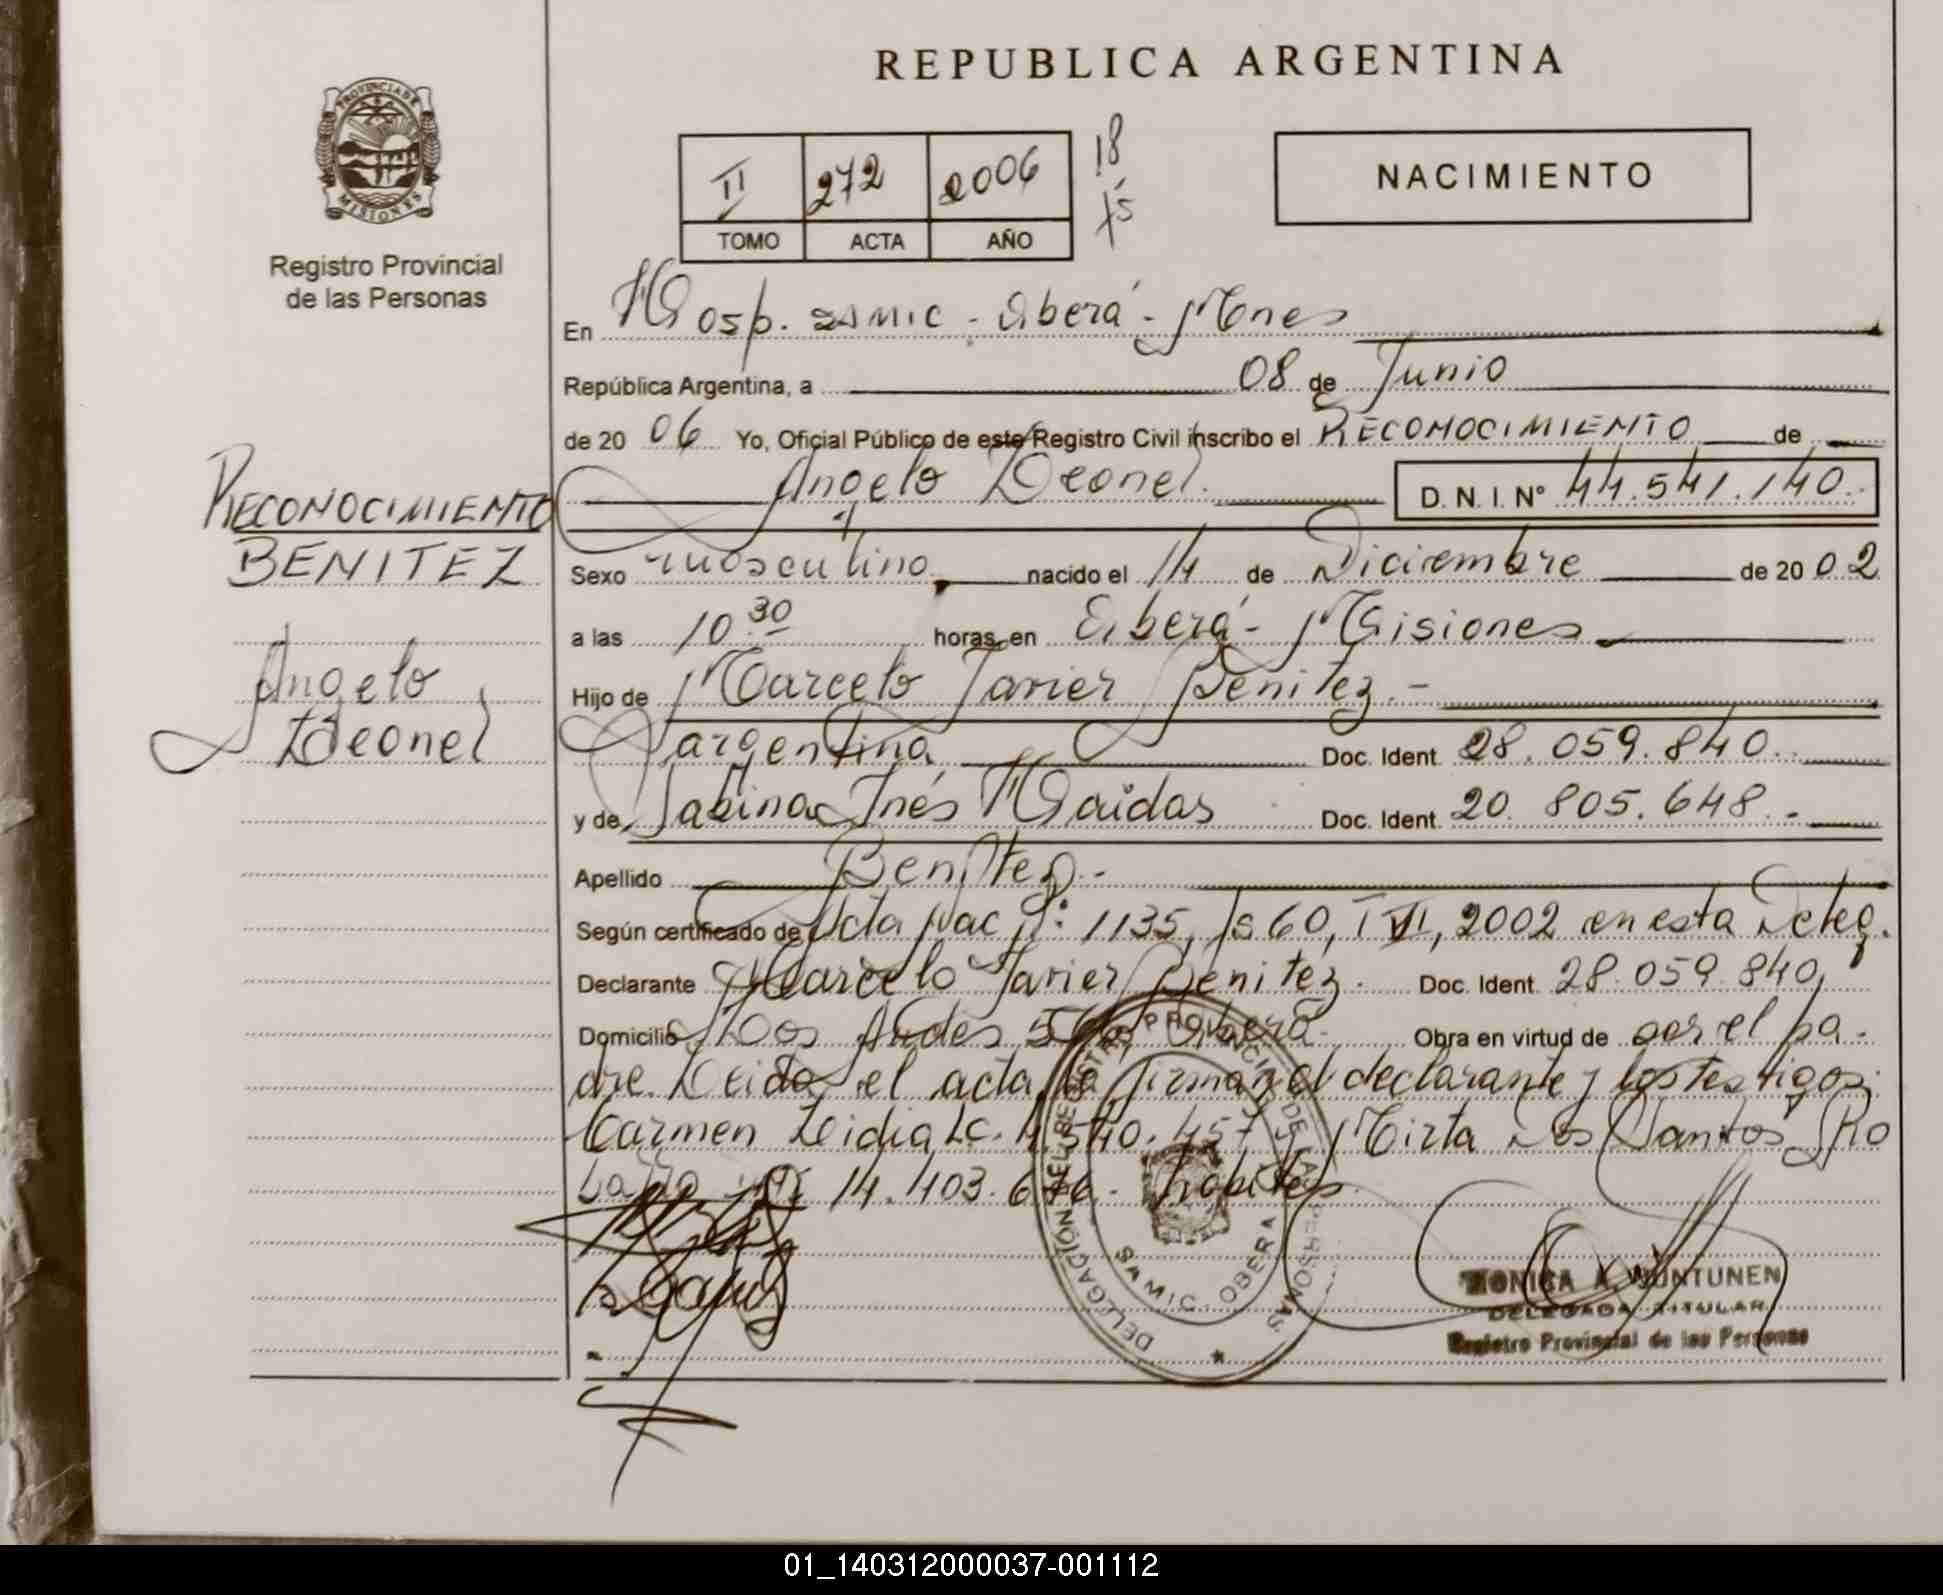 REPUBLICA ARGENTINA
PROVINCIA DE MISIONES
Registro Provincial
de las Personas
II 272 2006
TOMO ACTA AÑO
18
NACIMIENTO
En Hosp. SAMIC - Oberá - Mnes
República Argentina, a 08 de Junio
de 2006 Yo, Oficial Público de este Registro Civil inscribo el RECONOCIMIENTO de
Angelo Leonel. D. N. I. Nº 44.541.140.
RECONOCIMIENTO
BENITEZ
Angelo
Leonel
Sexo masculino nacido el 14 de Diciembre de 2002
a las 10.30 horas, en Oberá - Misiones
Hijo de Marcelo Javier Benitez.-
argentina Doc. Ident. 28.059.840.
y de Sabina Inés Haidas Doc. Ident. 20.805.648.-
Apellido Benitez.-
Según certificado de Acta Nac Nº: 1135, Fs 60, T VI, 2002 en esta Deleg.
Declarante Marcelo Javier Benitez. Doc. Ident. 28.059.840,
Domicilio Los Andes Oberá. Obra en virtud de ser el pa-
dre. Leida el acta la firman el declarante y los testigos:
Carmen Lidia LC. 4.540.457 y Mirta Dos Santos Ro
14.403.676.- habiles.
DELEGACIÓN DEL REGISTRO PROVINCIAL DE LAS PERSONAS
SAMIC - OBERA
MONICA A. WUNTUNEN
DELEGADA TITULAR
Registro Provincial de las Personas
01_140312000037-001112